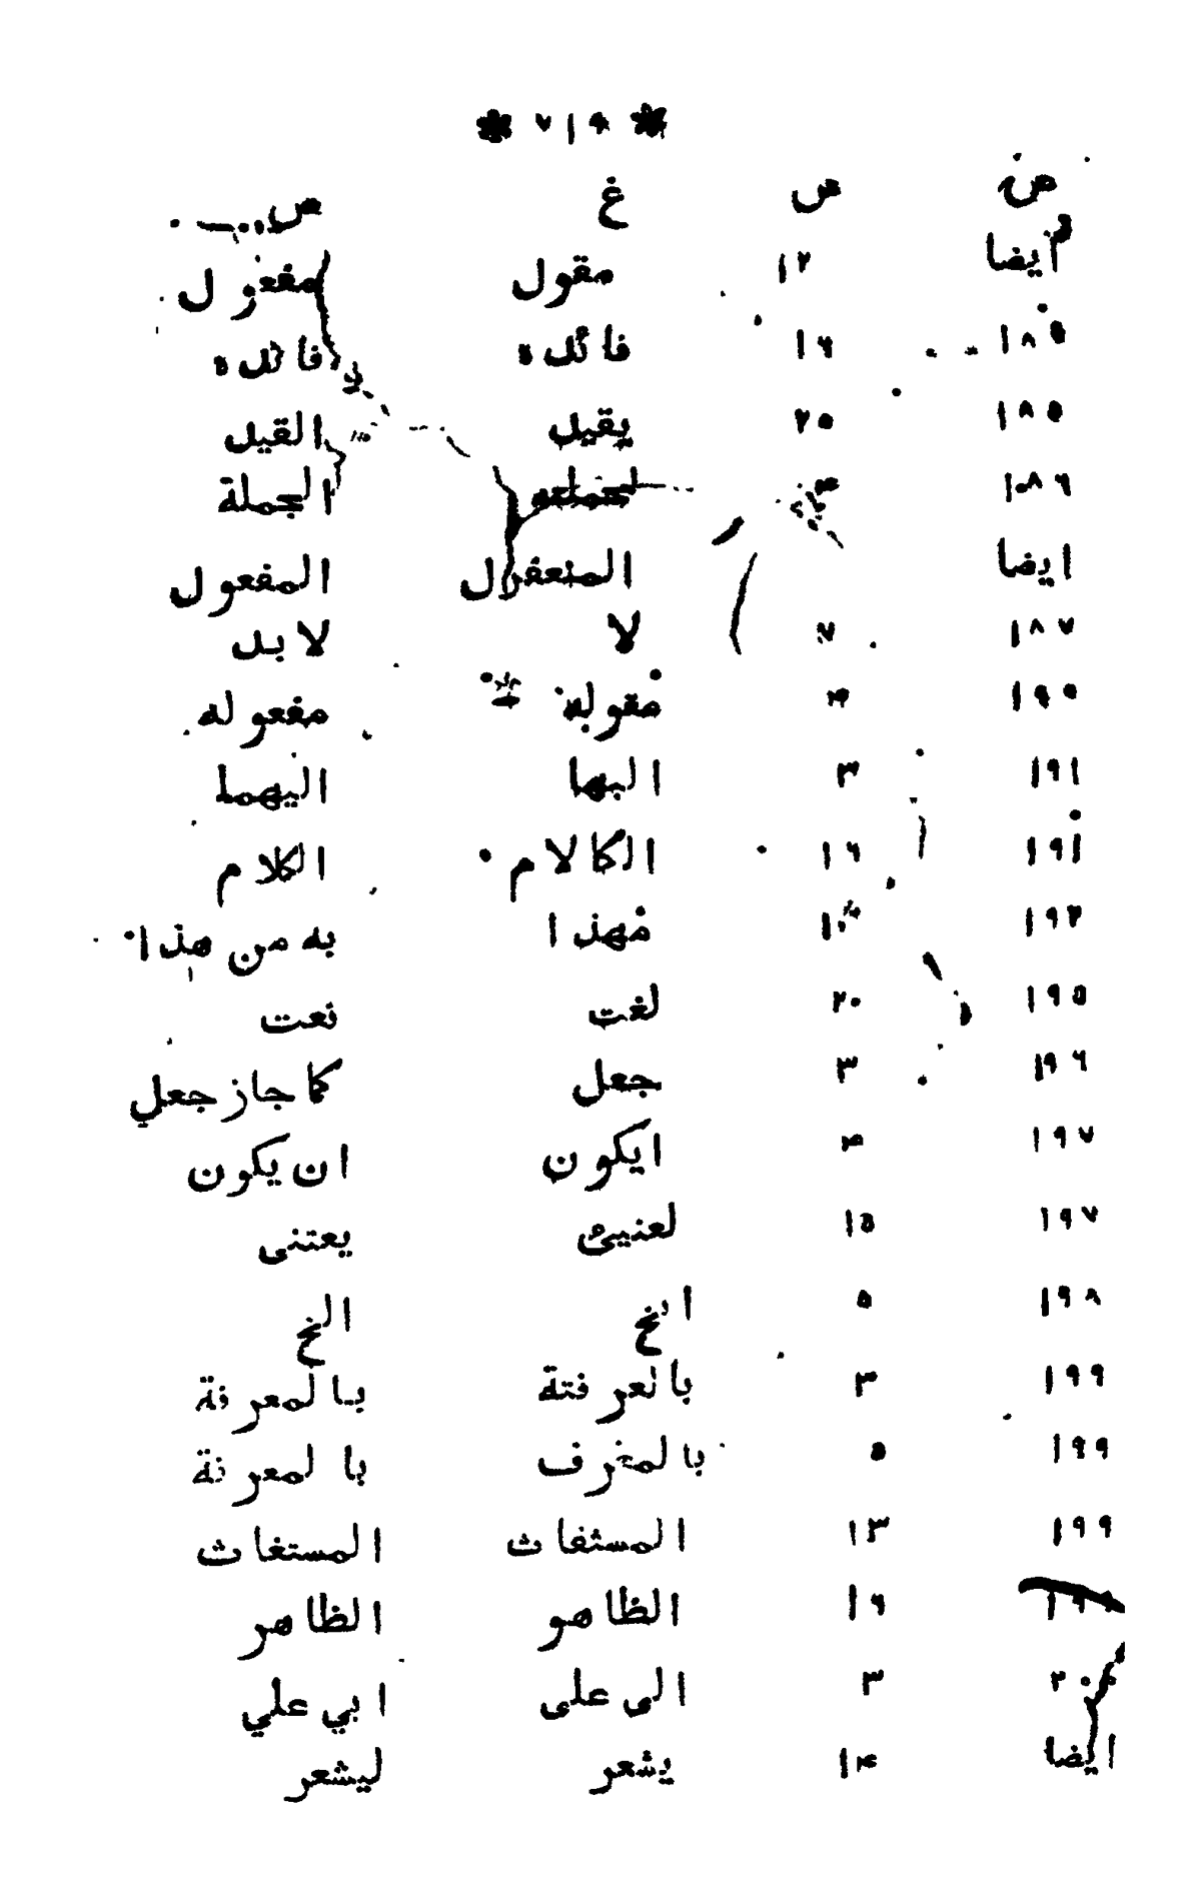 * ٧١٩ *
ص س غ ص
ايضا ١٢ مقول مفعول
١٨٥ ١٦ فائدہ فائدہ
١٨٥ ٢٥ يقيل القيل
١٨٦ لجملته الجملة
ايضا المنعفرل المفعول
١٨٧ ٧ لا لابل
١٩٠ ۴ مقوله مفعوله
١٩١ ٣ البها اليهما
١٩١ ١٦ الكالام الكلام
١٩٢ ١٠ مهذا به من هذا
١٩٥ ٢٠ لغت نعت
١٩٦ ٣ جعل كما جاز جعل
١٩٧ ۴ ايكون ان يكون
١٩٧ ١٥ لعنيئ يعتنى
١٩٨ ٥ انخ الخ
١٩٩ ٣ بالعرفتة بالمعرفة
١٩٩ ٥ بالمغرف بالمعرفة
١٩٩ ١٣ المسثفاث المستغاث
١٦ الظاهو الظاهر
٣ الى على ابي علي
ايضا ١۴ يشعر ليشعر